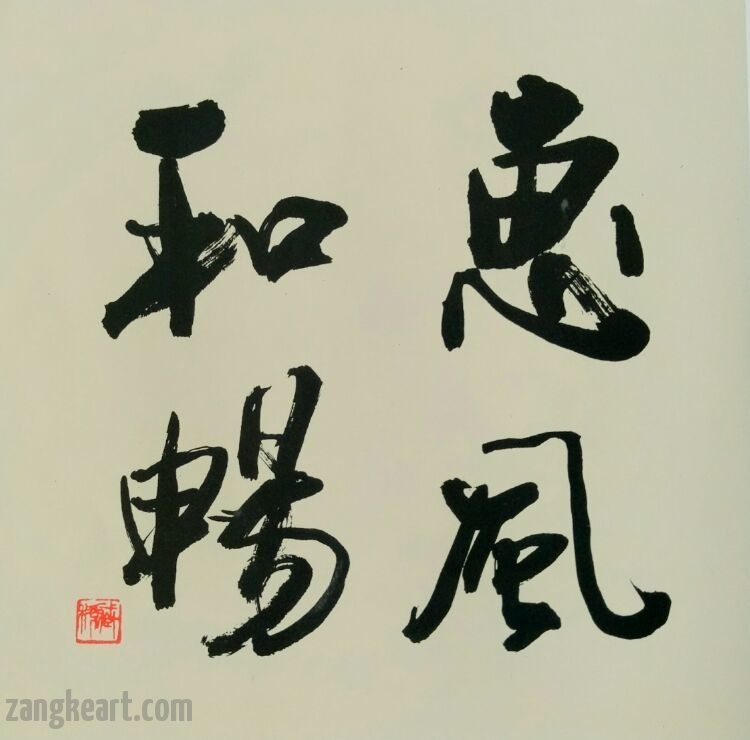 惠風
和暢
zangkeart.com